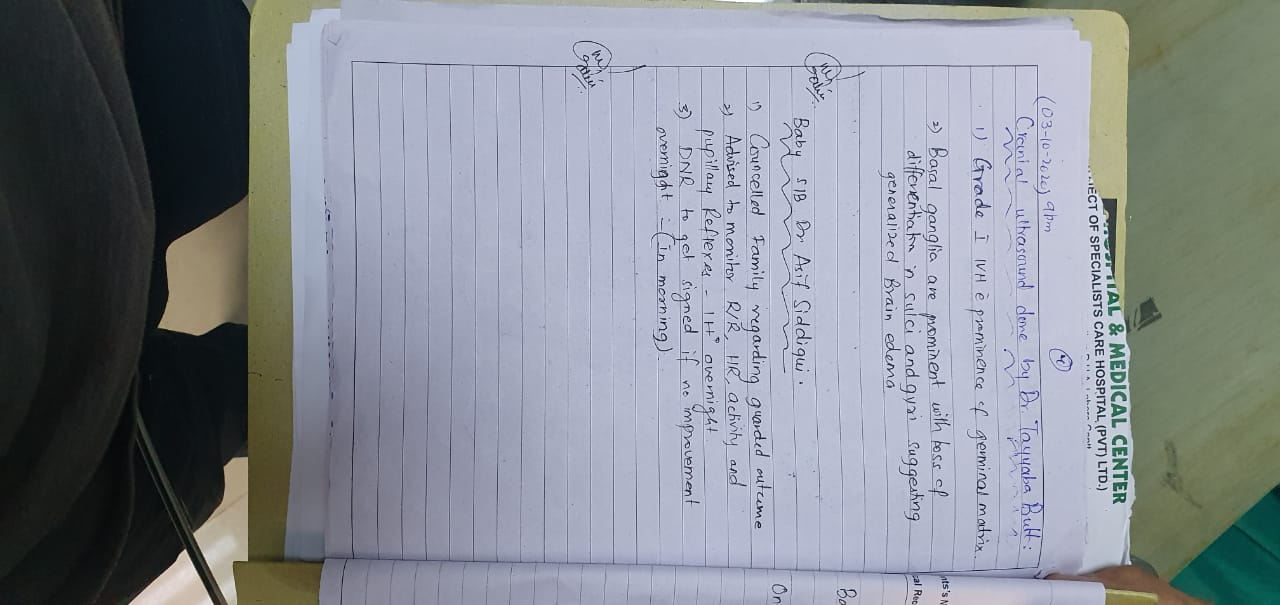 & MEDICAL CENTER
JECT OF SPECIALISTS CARE HOSPITAL, (PVT) LTD.)
(4)
(03-10-2020) 9pm
Cranial ultrasound done by Dr. Tayyaba Butt:
1) Grade I IVH c̄ prominence of germinal matrix.
2) Basal ganglia are prominent with loss of
differentiation in sulci and gyri suggesting
generalized Brain edema.
Baby S/B Dr Asif Siddiqui.
1) Councelled Family regarding guarded outcome
2) Advised to monitor R/R, HR, activity and
pupillary Reflexes - 1H° overnight.
3) DNR to get signed if no improvement
overnight - (in morning).
On